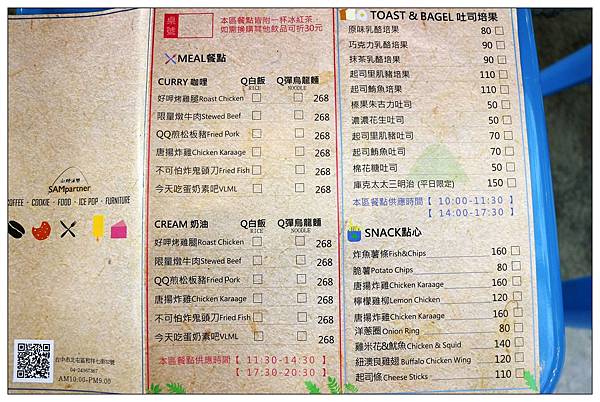 SAMpartner
COFFEE · COOKIE · FOOD · ICE POP · FURNITURE
AM10:00-PM9:00
桌號
本區餐點皆附一杯冰紅茶
如需換購其他飲品可折30元
MEAL餐點
CURRY 咖哩 Q白飯 RICE Q彈烏龍麵 NOODLE
好呷烤雞腿Roast Chicken 268
限量燉牛肉Stewed Beef 268
QQ煎松板豬Fried Pork 268
唐揚炸雞Chicken Karaage 268
不可怕炸鬼頭刀Fried Fish 268
今天吃蛋奶素吧VLML 268
CREAM 奶油 Q白飯 RICE Q彈烏龍麵 NOODLE
好呷烤雞腿Roast Chicken 268
限量燉牛肉Stewed Beef 268
QQ煎松板豬Fried Pork 268
唐揚炸雞Chicken Karaage 268
不可怕炸鬼頭刀Fried Fish 268
今天吃蛋奶素吧VLML 268
本區餐點供應時間【 11:30-14:30 】
【 17:30-20:30 】
TOAST & BAGEL 吐司焙果
原味乳酪焙果 80
巧克力乳酪焙果 90
抹茶乳酪焙果 90
起司里肌豬焙果 110
起司鮪魚焙果 110
榛果朱古力吐司 50
濃濃花生吐司 50
起司里肌豬吐司 70
起司鮪魚吐司 70
棉花糖吐司 50
庫克太太三明治 (平日限定) 150
本區餐點供應時間【 10:00-11:30 】
【 14:00-17:30 】
SNACK點心
炸魚薯條Fish&Chips 160
脆薯Potato Chips 80
唐揚炸雞Chicken Karaage 160
檸檬雞柳Lemon Chicken 120
唐揚炸雞Chicken Karaage 160
洋蔥圈Onion Ring 80
雞米花&魷魚Chicken & Squid 140
紐澳良雞翅Buffalo Chicken Wing 120
起司條Cheese Sticks 110